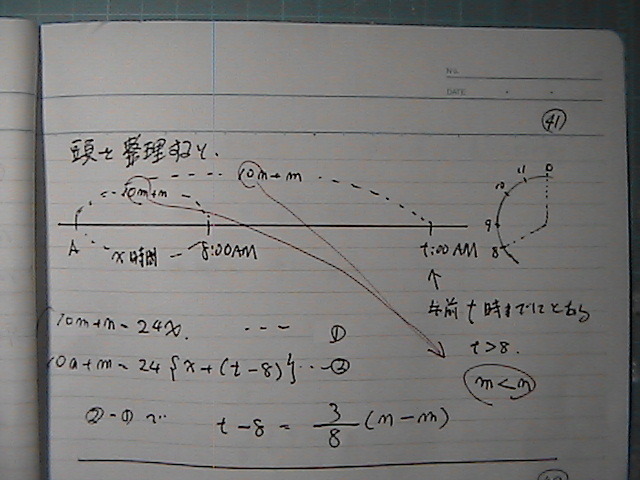 No.
DATE
41
頭を整理すると、
10m+n
10n+m
A
x時間
8:00AM
t:00AM
0
11
10
9
8
↑
午前t時までにとおる
t>8.
m<n
10m+n=24x. --- ①
10n+m=24{x+(t-8)}--②
②-①で
t-8 = 3/8 (n-m)